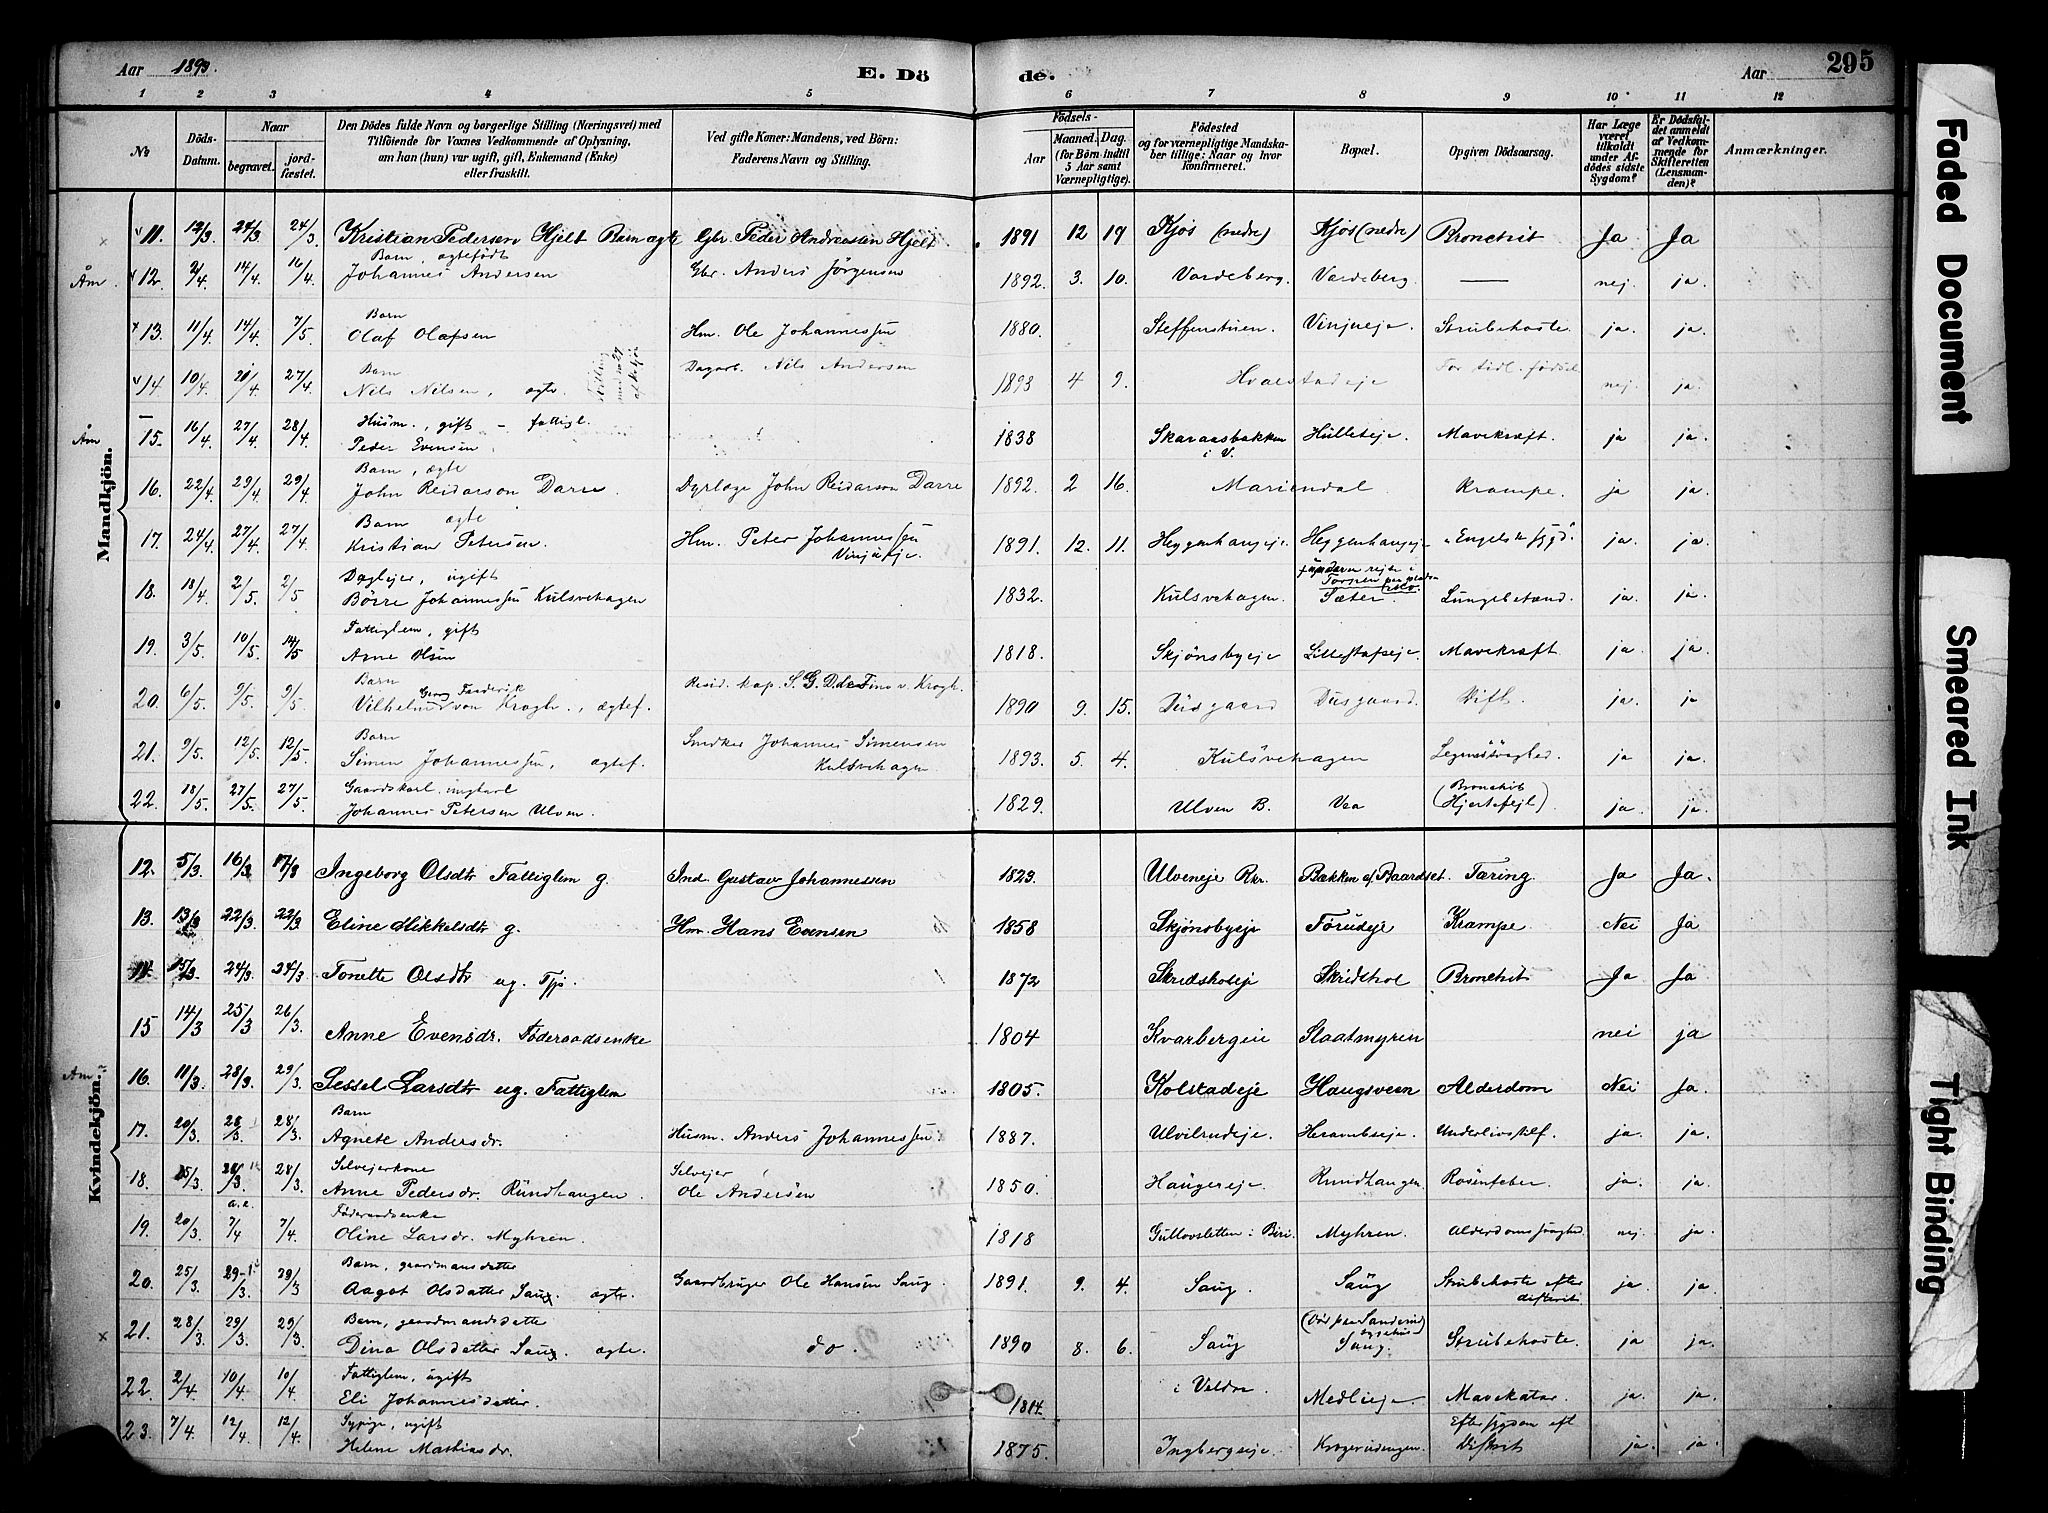 Aar 1893.
E. Dö
de.
Aar
295
1 2 3 4 5 6 7 8 9 10 11 12
No
Döds-Datum.
Naar
begravet.
jord-fæstet.
Den Dödes fulde Navn og borgerlige Stilling (Næringsvei) med
Tilföiende for Voxnes Vedkommende af Oplysning,
om han (hun) var ugift, gift, Enkemand (Enke)
eller fraskilt.
Ved gifte Koner: Mandens, ved Börn:
Faderens Navn og Stilling.
Födsels-
Aar
Maaned. Dag.
(for Börn indtil
5 Aar samt
Værnepligtige).
Födested
og for værnepligtige Mandska-
ber tillige: Naar og hvor
konfirmeret.
Bopæl.
Opgiven Dödsaarsag.
Har Læge
været
tilkaldt
under Af-
dödes sidste
Sygdom?
Er Dödsfal-
det anmeldt
af Vedkom-
mende for
Skifteretten
(Lensman-
den)?
Anmærkninger.
Mandkjön.
11. 12/3. 24/3 24/3. Kristian Pedersen Hjelt Barn ægte Gbr. Peder Andreassen Hjelt. 1891 12 19 Kjøs (nedre) Kjøs (nedre) Bronchit Ja Ja
Barn, ægtefødt
Åm. 12. 2/4. 14/4. 16/4. Johannes Andersen Gbr. Anders Jørgensen 1892. 3. 10. Vardeberg. Vardeberg. — nej. ja.
Barn
13. 11/4. 14/4. 7/5. Olaf Olafsen Hm. Ole Johannessen 1880. Steffenstuen. Vinjueje. Strubehoste. ja. ja.
Barn
14. 10/4. 20/4. 27/4. Nils Nilsen, ægte. Dagarb. Nils Andersen 1893 4 9. Hvalstadeje For tidl. fødsel nej. ja.
Husm., gift – fattigl.
Åm 15. 16/4. 27/4. 28/4. Peder Evensen. 1838 Skaraasbakken i V. Hulleteje. Mavekræft. ja ja.
Barn, ægte
16. 22/4. 29/4. 29/4. John Reidarson Darre. Dyrlæge John Reidarson Darre 1892. 2 16. Mariendal Krampe. ja ja.
Barn ægte
17. 24/4. 27/4. 27/4. Kristian Petersen. Hm. Peter Johannessen Vinjueje 1891. 12. 11. Heggenhaugeje. Heggenhaugeje "Engelsk syge". ja. ja.
Daglejer, ugift
18. 18/4. 2/5. 2/5. Børre Johannessen Kulsvehagen 1832. Kulsvehagen. Torpen Sæter. Lungebetænd. ja. ja.
Fattiglem, gift
19. 3/5. 10/5. 14/5 Arne Olsen 1818. Skjønsbyeje Lillestafseje. Mavekræft ja. ja.
Barn
20. 6/5. 9/5. 9/5. Vilhelm Georg Frederik von Krogh., ægtef. Resid. kap. S. G. D. de Fine v. Krogh. 1890 9. 15. Düsgaard Dusgaard. Difth. ja. ja
Barn
21. 9/5. 12/5. 12/5. Simen Johannessen, ægtef. Snedker Johannes Simensen Kulsvehagen. 1893. 5. 4. Kulsvehagen Legemssvaghed. ja ja.
Gaardskarl. ungkarl
22. 18/5. 27/5. 27/5. Johannes Petersen Ulven. 1829. Ulven B. Vea Bronchit (Hjertefejl) ja. ja.
Kvindekjön.
12. 5/3. 16/3 17/3 Ingeborg Olsdtr Fattiglem g. Ind. Gustav Johannessen 1823. Ulveneje Rkr. Bakken af Baardset. Tæring. Ja Ja.
13. 13/3 22/3. 22/3. Eline Mikkelsdtr g. Hm. Hans Evensen 1858 Skjønsbyeje Førudeje Krampe. Nei Ja
14. 15/3. 24/3. 24/3 Tonette Olsdtr ug. Tjp. 1872 Skridsholeje Skridshol Bronchit Ja Ja
15 14/3 25/3 26/3. Anne Evensdr. Föderaadsenke 1804 Kvarbergeie Slaatmyren nei ja
Åm 16. 11/3. 28/3. 29/3. Sessel Larsdtr ug. Fattiglem 1805. Kolstadeje Haugsveen Alderdom Nei Ja.
Barn
17. 20/3. 28/3. 28/3. Agnete Andersdr. Husm. Anders Johannessen 1887. Ulvilrudeje. Herambseje. Underlivstilf. ja. ja.
Selvejerkone
18. 15/3. 28/3. 28/3. Anne Pedersdr. Rundhaugen. Selvejer Ole Andersen 1850. Haugereje. Rundhaugen. Rosenfeber. ja. ja.
Föderaadsenke
19. 20/3. 7/4 7/4. Oline Larsdr. Myhren. 1818 Gullovsletten i Biri. Myhren. Alderdomssvaghed nej. ja.
Barn, gaardmansdatter
20. 25/3. 29/3. 29/3 Aagot Olsdatter Saug. ægte. Gaardbruger Ole Hansen Saug. 1891. 9. 4. Saug. Saug Strubehoste efter difterit. ja ja.
Barn, gaardmandsdatter
21. 28/3. 29/3. 29/3. Dina Olsdatter Saug. ægte. do. 1890 8. 6. Saug (Död paa Sanderud sygehus) Saug. Strubehoste. ja ja.
Fattiglem, ugift
22. 2/4. 10/4. 10/4 Eli Johannesdatter. 1814. i Veldre Medlieje. Mavekatar. ja. ja.
Sypige, ugift
23. 7/4. 12/4. 12/4. Helene Mathiasdr. 1875. Ingbergseje. Krøgerudengen. Eftersygdom eft Difterit ja. ja.
Faded Document
Smeared Ink
Tight Binding